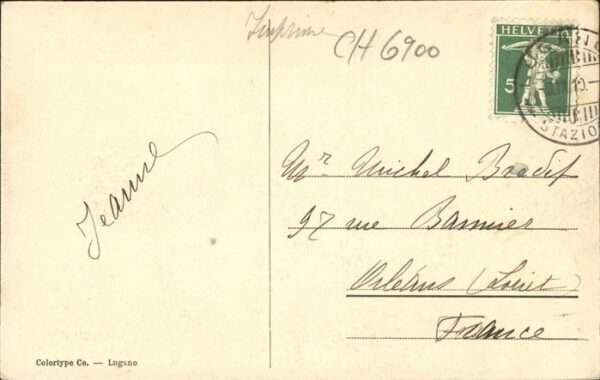 Imprimé
CH 6900
HELVETIA
5
STAZIO
Jeanne
Mr. Michel
97 rue Bannier
Orléans (Loiret)
France
Colortype Co. — Lugano